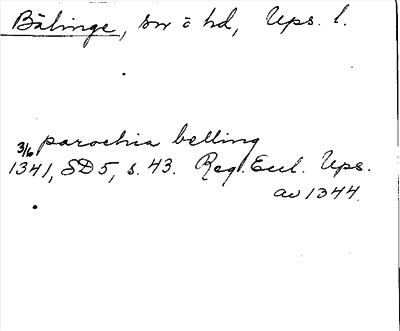 Bälinge, sn o hd, Ups. l.
3/6 parochia belling
1341, SD 5, s. 43. Reg. Eccl. Ups.
av 1344.